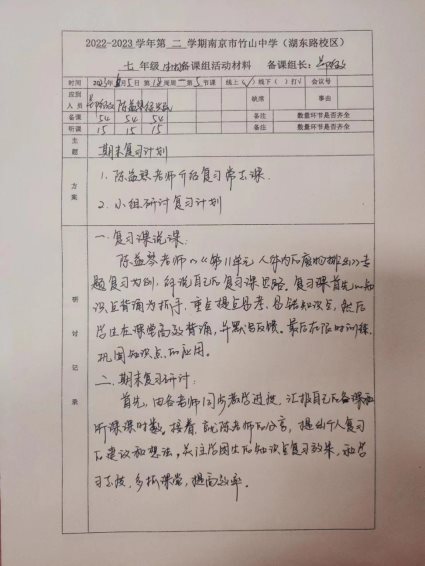 2022-2023学年第 二 学期南京市竹山中学（湖东路校区）
七 年级 生物备课组活动材料 备课组长：
时间 2023年6月5日 第18周周一第5节课 线上（ ）线下（ ）打√ 会议号
应到人员 陈益琴 缺席 事由
备课 54 54 54 备注 数量环节是否齐全
听课 15 15 15 备注 数量环节是否齐全
主题 期末复习计划
方案
1. 陈益琴老师介绍复习常态课.
2. 小组研讨复习计划
研讨记录
一. 复习课说课:
陈益琴老师以《第11单元 人体内的废物排出》专
题复习为例, 解说自己的复习课思路. 复习课首先以知
识点背诵为抓手, 重点提点易考、易错知识点, 然后
学生在课堂高效背诵, 并默写反馈. 最后在限时训练
巩固知识点的应用.
二. 期末复习研讨:
首先, 由各老师同步教学进度, 汇报自己的备课和
听课课时数. 接着 就陈老师的分享, 提出个人复习
的建议和想法. 关注学困生的知识点复习效果, 和学
习态度, 多抓课堂, 提高效率.